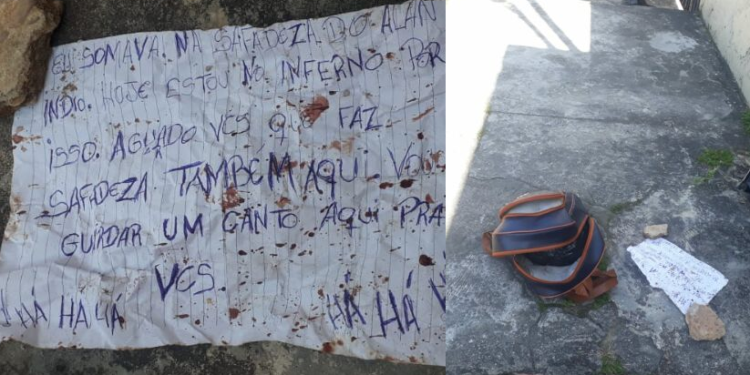 EU SOMAVA. NA SAFADEZA. DO ALAN
INDIO. HOJE ESTOU NO INFERNO POR
ISSO. AGUADO VCS QUE FAZ
SAFADEZA. TAMBÉM AQUI. VOU
GUARDAR UM CANTO AQUI PRA
VCS.
HÁ HA HÁ HA HÁ